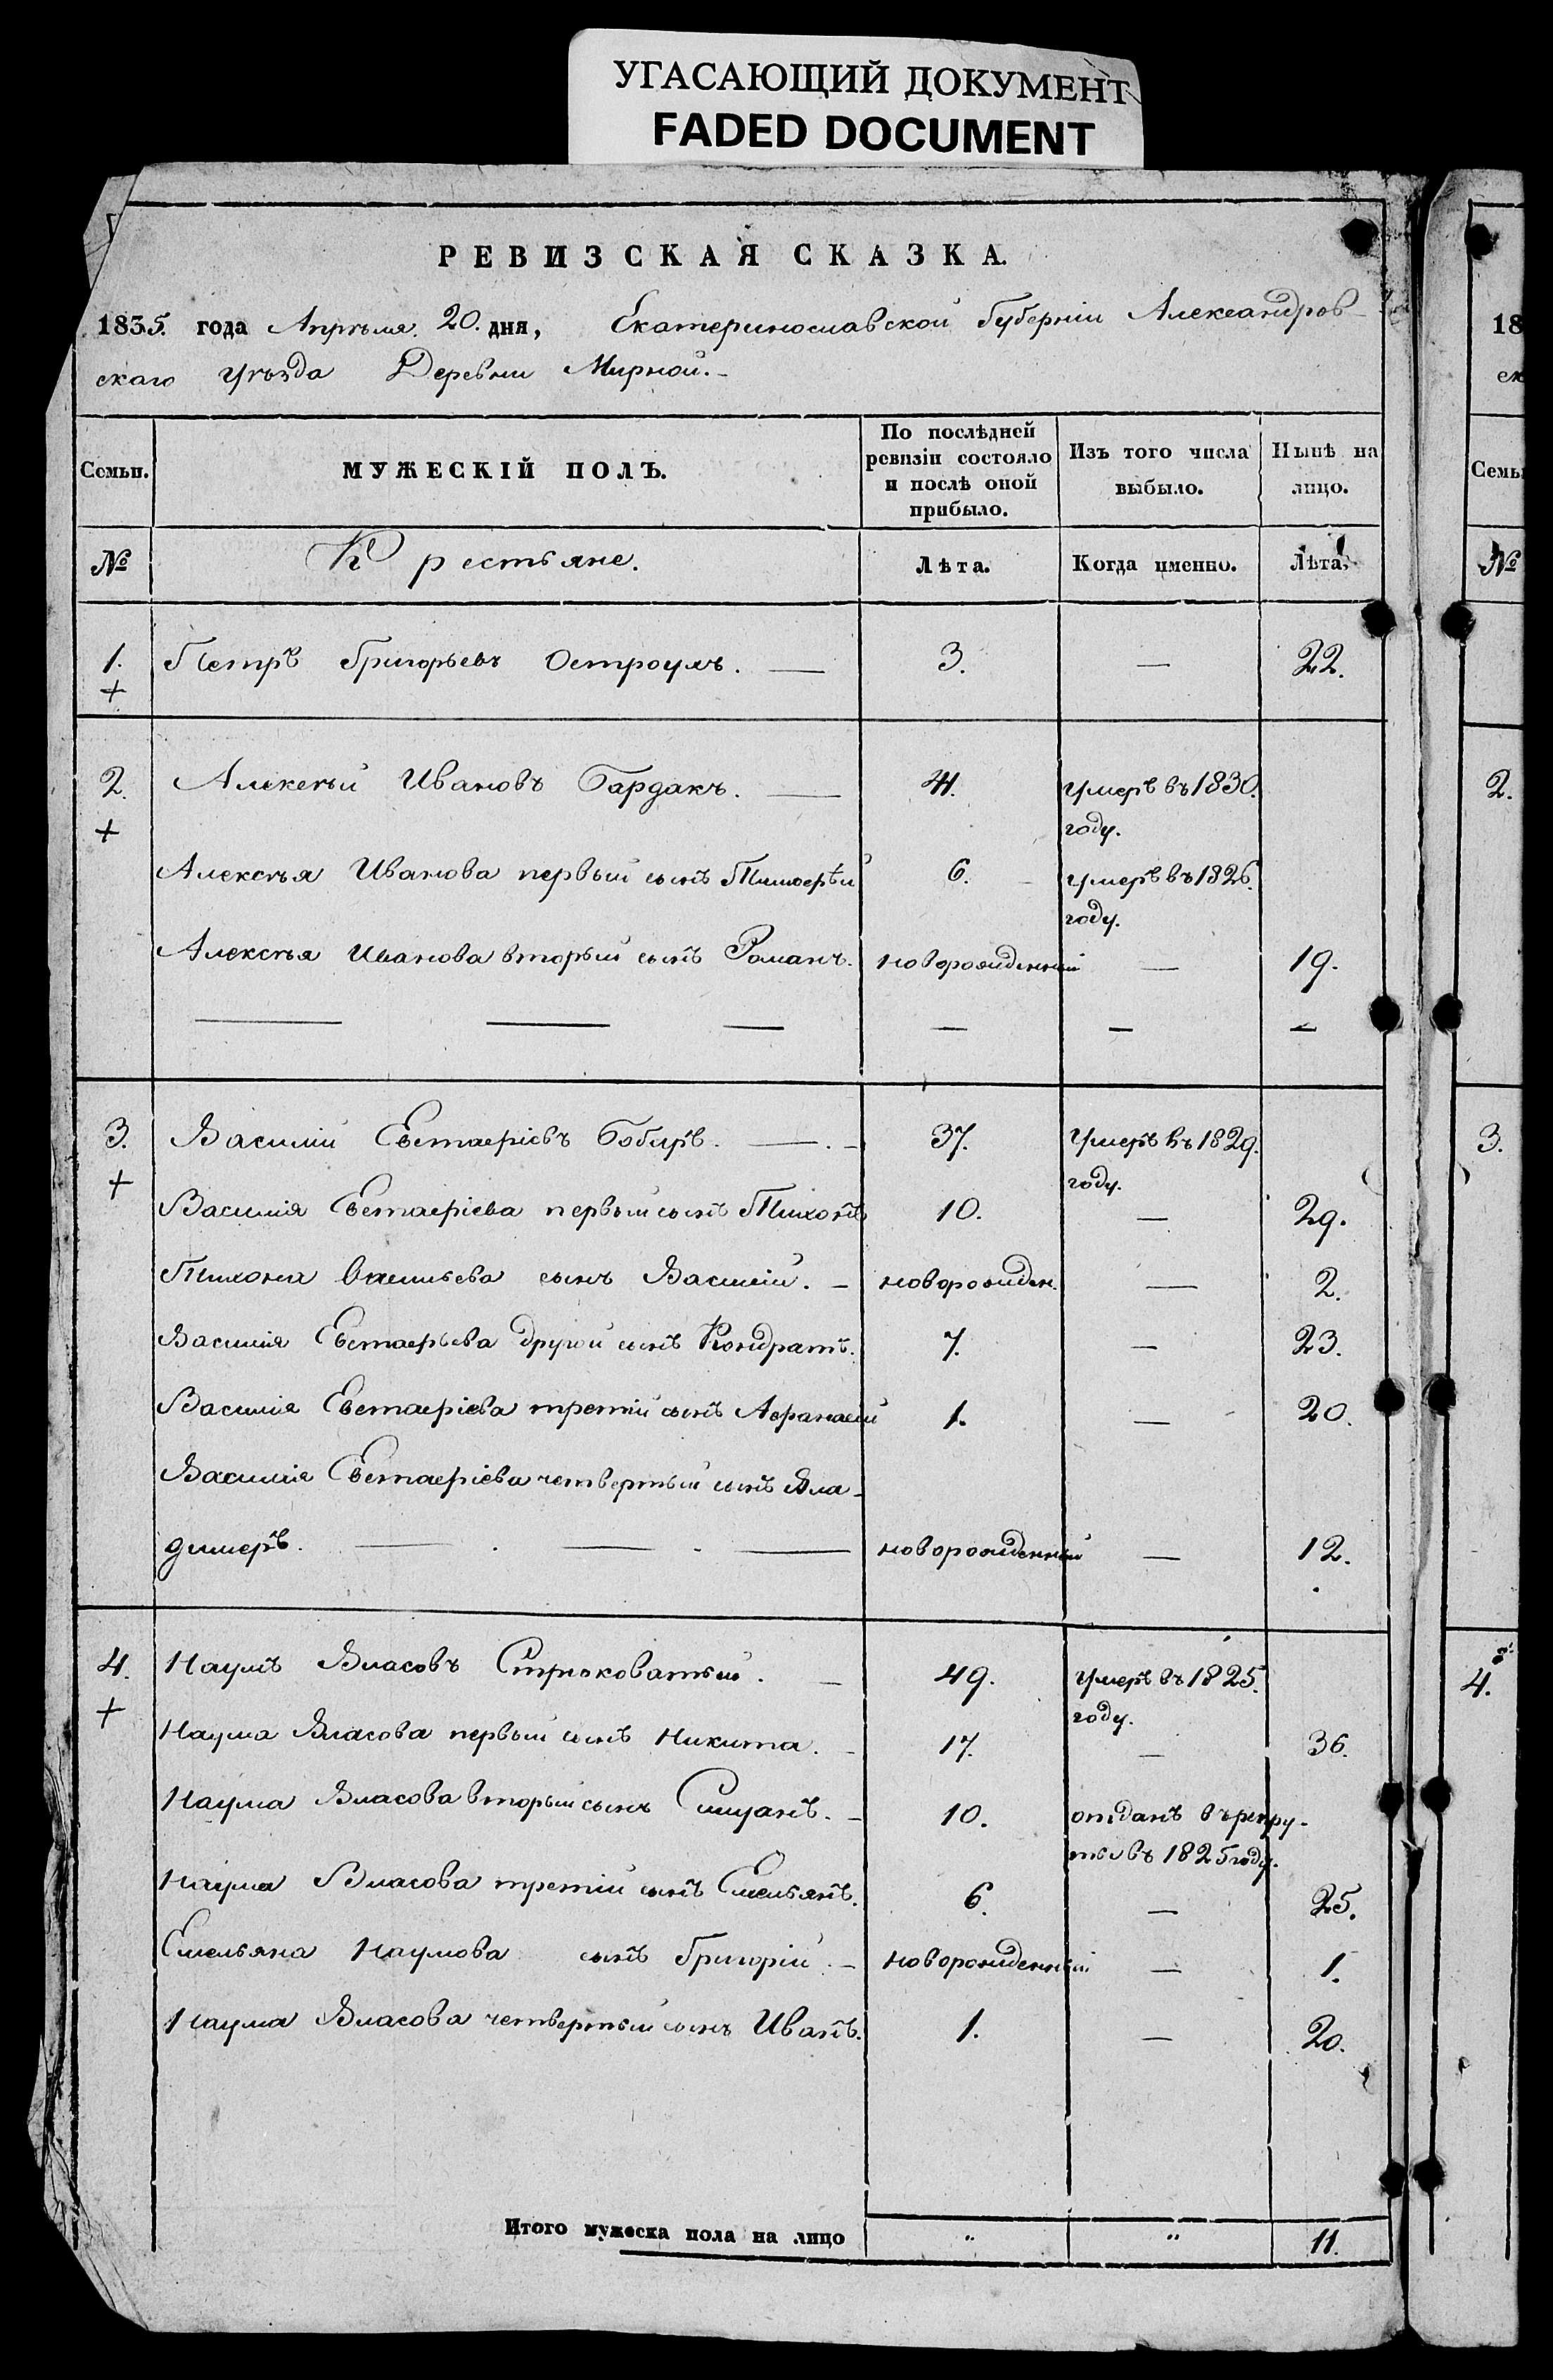 УГАСАЮЩИЙ ДОКУМЕНТ
FADED DOCUMENT
РЕВИЗСКАЯ СКАЗКА.
1835. года Апрѣля. 20. дня, Екатеринославской Губерніи Александров-
скаго Уѣзда Деревни Мирной.-
Семьи. МУЖЕСКІЙ ПОЛЪ. По послѣдней ревизіи состояло и послѣ оной прибыло. Изъ того числа выбыло. Нынѣ на лицо.
№ Крестьяне. Лѣта. Когда именно. Лѣта.
1. Петръ Григорьевъ Остроумъ. — 3. — 22.
+
2. Алексѣй Ивановъ Бардакъ. — 41. умеръ въ 1830.
+ году.
Алексѣя Иванова первый сынъ Тимоѳѣй 6. умеръ въ 1826.
году.
Алексѣя Иванова вторый сынъ Романъ. новорожденный — 19.
— — — — — —
3. Василій Евстафіевъ Бобырь. — 37. Умеръ въ 1829.
+ году.
Василія Евстафіева первый сынъ Тихонъ 10. — 29.
Тихона Васильева сынъ Василій. - новорожден. — 2.
Василія Евстафьева другой сынъ Кондратъ. 7. — 23.
Василія Евстафіева третій сынъ Афанасій 1. — 20.
Василія Евстафіева четвертый сынъ Вла-
димеръ. — . — . — новорожденный — 12.
4. Наумъ Власовъ Стрюковатый. - 49. Умеръ въ 1825.
+ году.
Наума Власова первый сынъ Никита. - 17. — 36.
Наума Власова вторый сынъ - 10. отданъ въ рекру-
ты въ 1825 году.
Наума Власова третій сынъ Емельянъ. 6. — 25.
Емельяна Наумова сынъ Григорій. - новорожденный — 1.
Наума Власова четвертый сынъ Иванъ. 1. — 20.
Итого мужеска пола на лицо " " 11.
18
ск
Семьи
№
2.
3.
4.